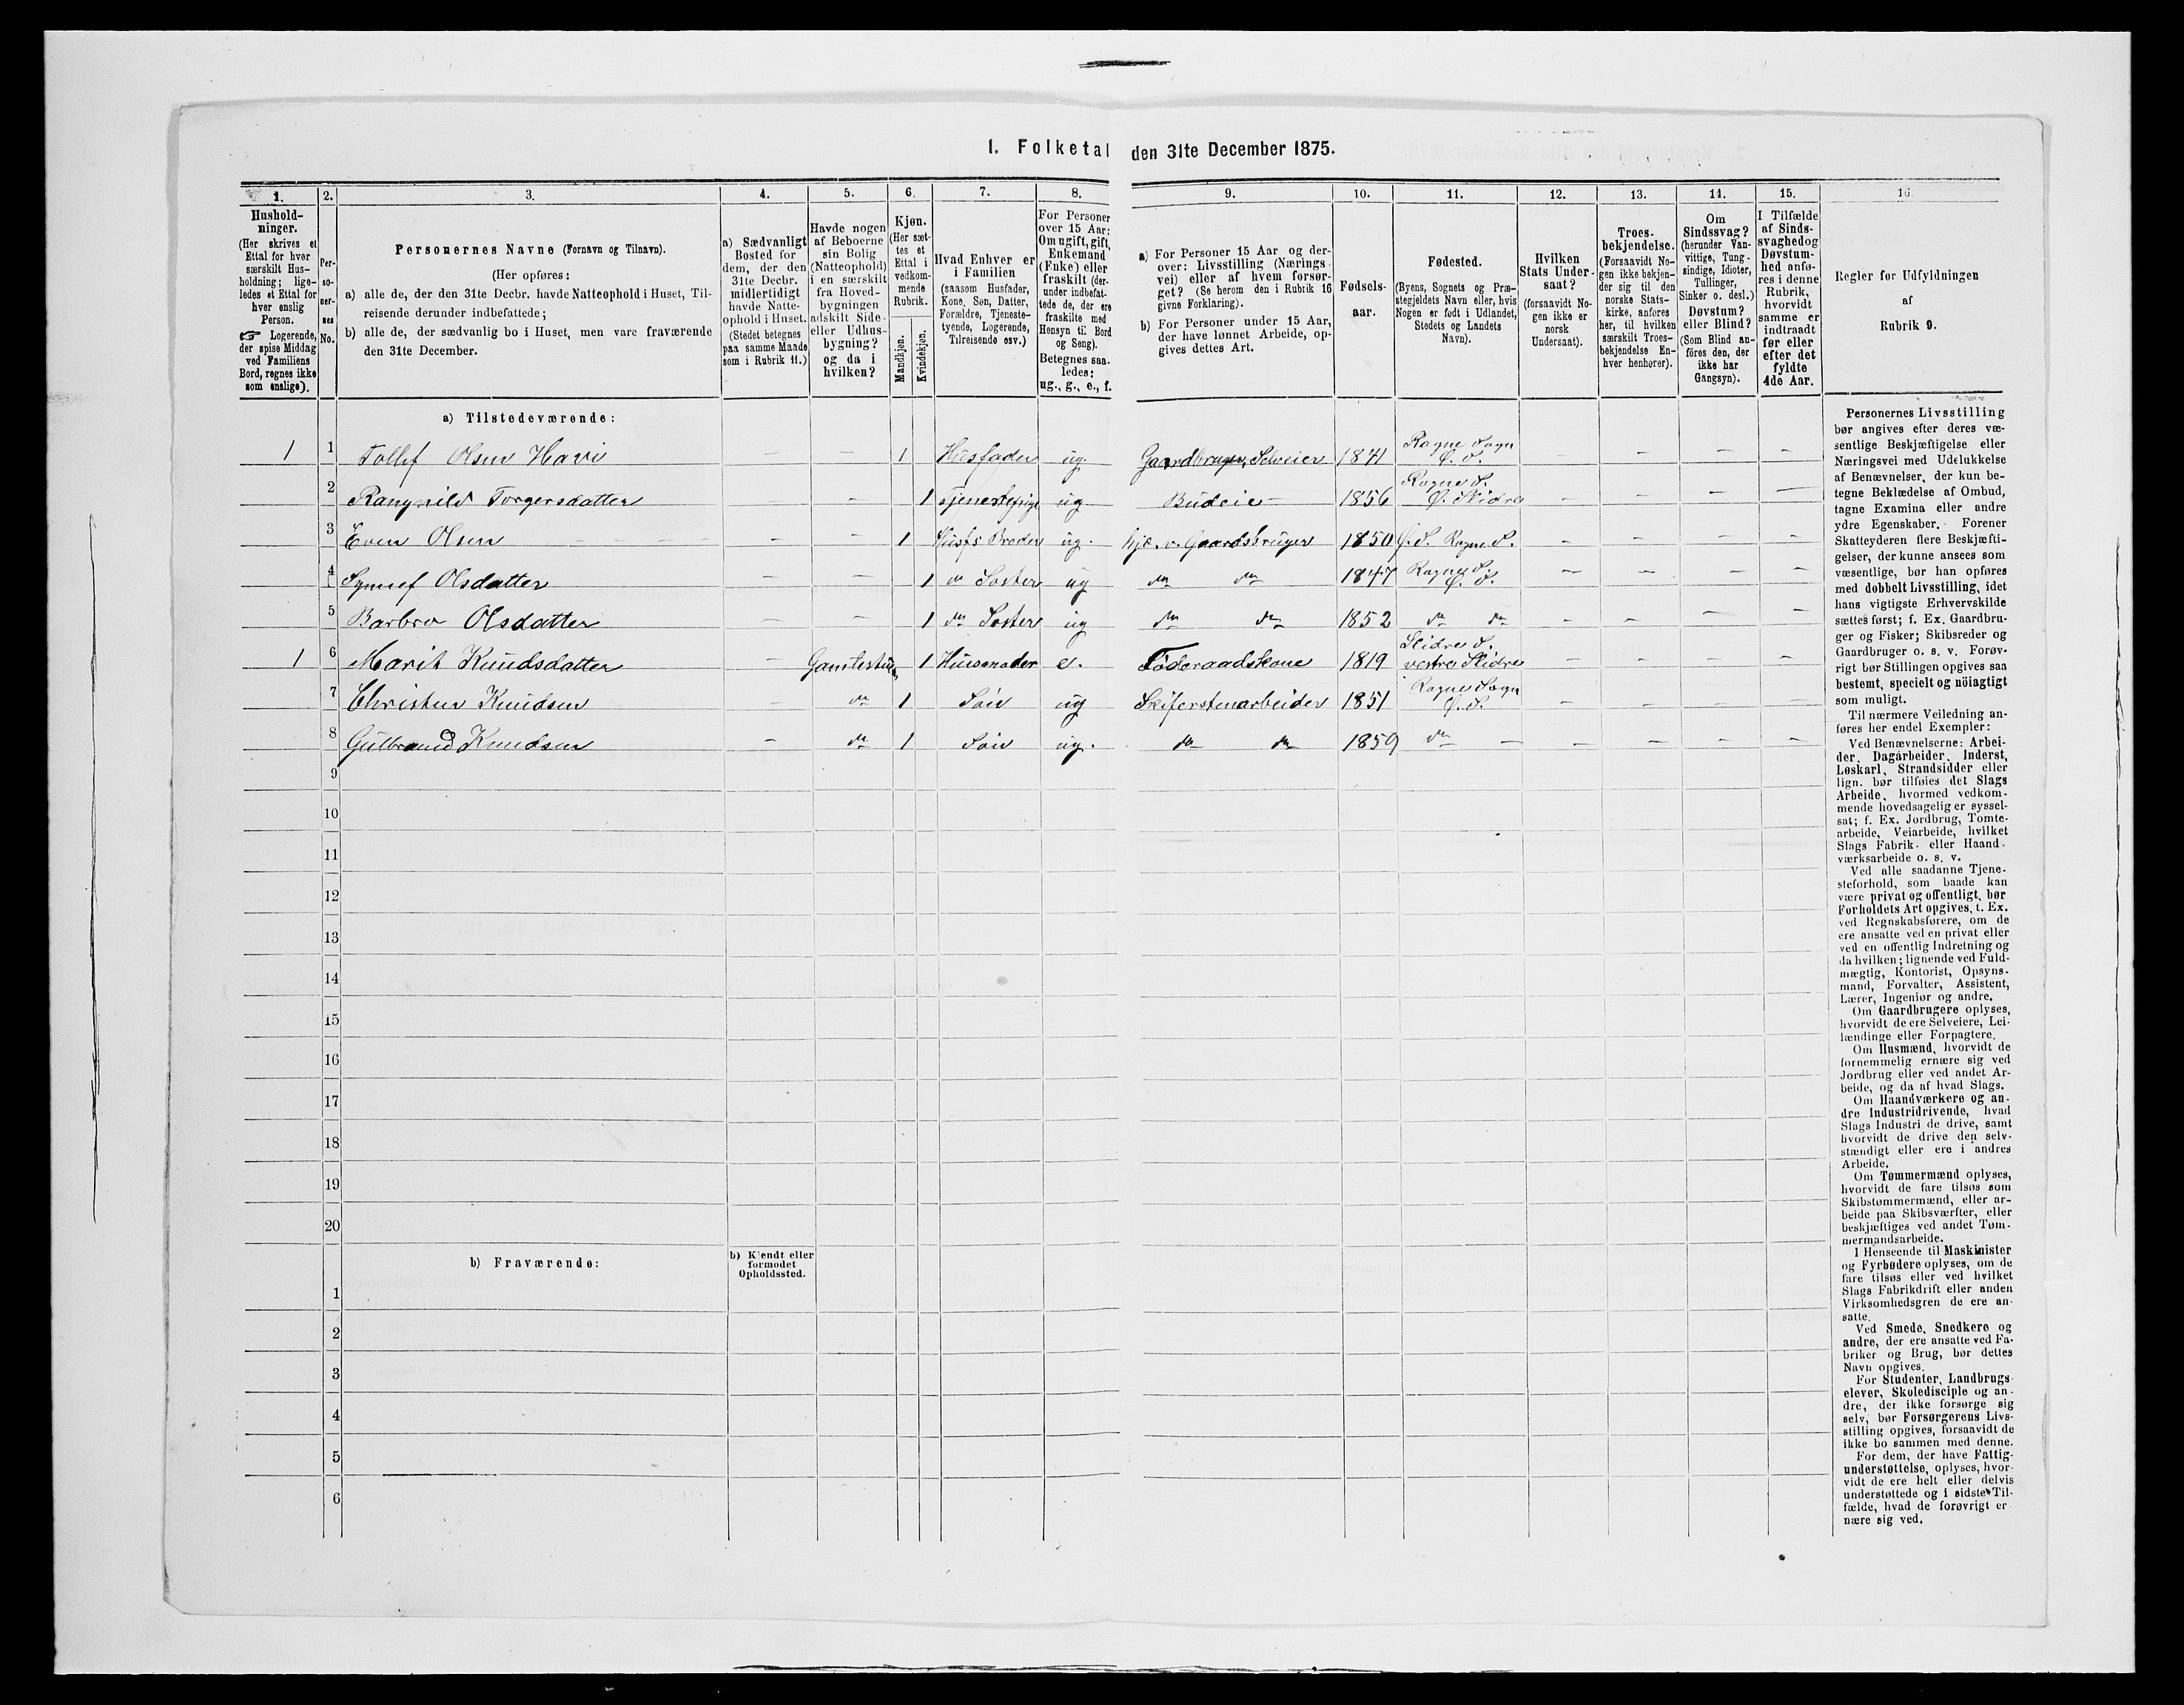 1. Folketal den 31te December 1875.
1. 2. 3. 4. 5. 6. 7. 8. 9. 10. 11. 12. 13. 14. 15. 16.
Hushold-
ninger.
(Her skrives et
Ettal for hver
særskilt Hus-
holdning; lige-
ledes et Ettal for
hver enslig
Person.
☞ Logerende,
der spise Middag
ved Familiens
Bord, regnes ikke
som enslige).
Per-
so-
ner-
nes
No.
Personernes Navne (Fornavn og Tilnavn).
(Her opføres:
a) alle de, der den 31te Decbr. havde Natteophold i Huset, Til-
reisende derunder indbefattede;
b) alle de, der sædvanlig bo i Huset, men vare fraværende
den 31te December.
a) Sædvanligt
Bosted for
dem, der den
31te Decbr.
midlertidigt
havde Natte-
ophold i Huset.
(Stedet betegnes
paa samme Maade
som i Rubrik 11.)
Havde nogen
af Beboerne
sin Bolig
(Natteophold)
i en særskilt
fra Hoved-
bygningen
adskilt Side-
eller Udhus-
bygning?
og da i
hvilken?
Kjøn.
(Her sæt-
tes et
Ettal i
vedkom-
mende
Rubrik.
Mandkjøn.
Kvindekjøn.
Hvad Enhver er
i Familien
(saasom Husfader,
Kone, Søn, Datter,
Forældre, Tjeneste-
tyende, Logerende,
Tilreisende osv.)
For Personer
over 15 Aar:
Om ugift, gift,
Enkemand
(Enke) eller
fraskilt (der-
under indbefat-
tede de, der ere
fraskilte med
Hensyn til Bord
og Seng).
Betegnes saa-
ledes:
ug., g., e., f.
a) For Personer 15 Aar og der-
over: Livsstilling (Nærings-
vei) eller af hvem forsør-
get? (Se herom den i Rubrik 16
givne Forklaring).
b) For Personer under 15 Aar,
der have lønnet Arbeide, op-
gives dettes Art.
Fødsels-
aar.
Fødested.
(Byens, Sognets og Præ-
stegjeldets Navn eller, hvis
Nogen er født i Udlandet,
Stedets og Landets
Navn).
Hvilken
Stats Under-
saat?
(forsaavidt No-
gen ikke er
norsk
Undersaat).
Troes-
bekjendelse.
(Forsaavidt No-
gen ikke bekjen-
der sig til den
norske Stats-
kirke, anføres
her, til hvilken
særskilt Troes-
bekjendelse En-
hver henhører).
Om
Sindssvag?
(herunder Van-
vittige, Tung-
sindige, Idioter,
Tullinger,
Sinker o. desl.)
Døvstum?
eller Blind?
(Som Blind an-
föres den, der
ikke har
Gangsyn).
I Tilfælde
af Sinds-
svaghed og
Døvstum-
hed anfø-
res i denne
Rubrik,
hvorvidt
samme er
indtraadt
før eller
efter det
fyldte
4de Aar.
Regler for Udfyldningen
af
Rubrik 9.
a) Tilstedeværende:
1 1 Tollef Olsen Havi — — 1 Husfader ug. Gaardbruger, Selveier 1841 Rogne Sogn Ø. S. — — — —
2 Rangnild Torgersdatter — 1 Tjenestepige ug Budeie — 1856 Rogne S. Ø. Slidre — — — —
3 Even Olsen — — 1 Husfs Broder ug. hjæ. v. Gaardsbruger 1850 Ø. S. Rogne S. — — — —
4 Synnef Olsdatter — — 1 do Søster ug do do 1847 Rogne S. Ø. S. — — — —
5 Barbro Olsdatter — — 1 do Søster ug do do 1852 do do — — — —
1 6 Marit Knudsdatter — Gamlestuen 1 Husmoder e. Føderaadskone 1819 Slidre S. vestre Slidre — — — —
7 Christen Knudsen — do 1 Søn ug Skiferstenarbeider 1851 Rogne Sogn Ø. S. — — — —
8 Gulbrand Knudsen — do 1 Søn ug. do do 1859 do — — — — —
9
10
11
12
13
14
15
16
17
18
19
20
b) Fraværende:
b) Kjendt eller
formodet
Opholdssted.
1
2
3
4
5
6
Personernes Livsstilling
bør angives efter deres væ-
sentlige Beskjæftigelse eller
Næringsvei med Udelukkelse
af Benævnelser, der kun be-
tegne Beklædelse af Ombud,
tagne Examina eller andre
ydre Egenskaber. Forener
Skatteyderen flere Beskjæfti-
gelser, der kunne ansees som
væsentlige, bør han opføres
med dobbelt Livsstilling, idet
hans vigtigste Erhvervskilde
sættes først; f. Ex. Gaardbru-
ger og Fisker; Skibsreder og
Gaardbruger o. s. v. Forøv-
rigt bør Stillingen opgives saa
bestemt, specielt og nöiagtigt
som muligt.
Til nærmere Veiledning an-
føres her endel Exempler:
Ved Benævnelserne: Arbei-
der, Dagarbeider, Inderst,
Løskarl, Strandsidder eller
lign. bør tilføies det Slags
Arbeide, hvormed vedkom-
mende hovedsagelig er syssel-
sat; f. Ex. Jordbrug, Tomte-
arbeide, Veiarbeide, hvilket
Slags Fabrik- eller Haand-
værksarbeide o. s. v.
Ved alle saadanne Tjene-
steforhold, som baade kan
være privat og offentligt, bør
Forholdets Art opgives, t. Ex.
ved Regnskabsførere, om de
ere ansatte ved en privat eller
ved en offentlig Indretning og
da hvilken; lignende ved Fuld-
mægtig, Kontorist, Opsyns-
mand, Forvalter, Assistent,
Lærer, Ingeniør og andre.
Om Gaardbrugere oplyses,
hvorvidt de ere Selveiere, Lei-
lændinge eller Forpagtere.
Om Husmænd, hvorvidt de
fornemmelig ernære sig ved
Jordbrug eller ved andet Ar-
beide, og da af hvad Slags.
Om Haandværkere og an-
dre Industridrivende, hvad
Slags Industri de drive, samt
hvorvidt de drive den selv-
stændigt eller ere i andres
Arbeide.
Om Tømmermænd oplyses,
hvorvidt de fare tilsøs som
Skibstømmermænd, eller ar-
beide paa Skibsværfter, eller
beskjæftiges ved andet Tøm-
mermandsarbeide.
I Henseende til Maskinister
og Fyrbødere oplyses, om de
fare tilsøs eller ved hvilket
Slags Fabrikdrift eller anden
Virksomhedsgren de ere an-
satte.
Ved Smede, Snedkere og
andre, der ere ansatte ved Fa-
briker og Brug, bør dettes
Navn opgives.
For Studenter, Landbrugs-
elever, Skoledisciple og an-
dre, der ikke forsørge sig
selv, bør Forsørgerens Livs-
stilling opgives, forsaavidt de
ikke bo sammen med denne.
For dem, der have Fattig-
understøttelse, oplyses, hvor-
vidt de ere helt eller delvis
understøttede og i sidste Til-
fælde, hvad de forøvrigt er-
nære sig ved.